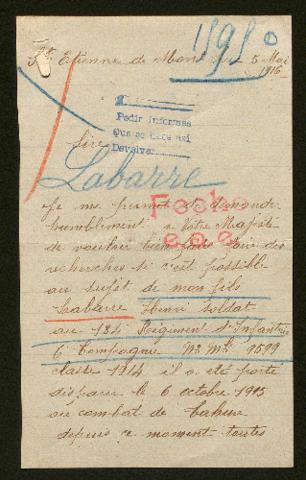 1898 0
St Etienne de Mont 5 Mai
1916
Pedir informes
Que se hace así
Devolver
Sire
Labarre
Je me permet de demande
humblement a Votre Majesté
de vouloir bien faire faire des
recherches si c'est possible
au sujet de mon fils
Labarre Henri soldat
au 184 Regiment d'Infanterie
6 Compagnie No Mle 9599
classe 1914 il a été porté
disparu le 6 octobre 1915
au combat de Tahure
depuis ce moment toutes